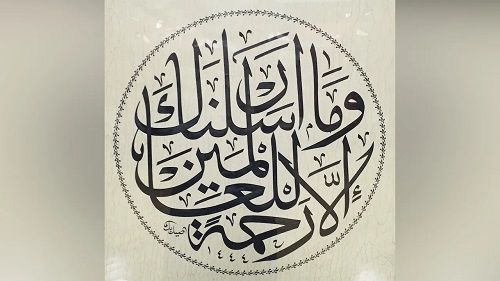 وَمَا أَرْسَلْنَٰكَ
إِلَّا رَحْمَةً لِلْعَالَمِينَ